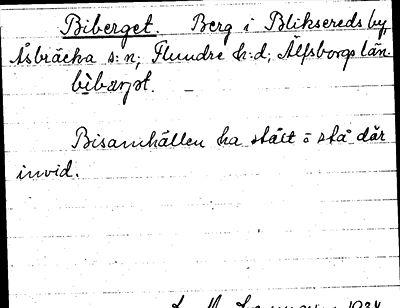 Biberget. Berg i Bliksereds by,
Åsbräcka s:n; Flundre h:d; Älfsborgs län.
bìbærjət.
Bisamhällen ha stått ō stå där
invid.
1934